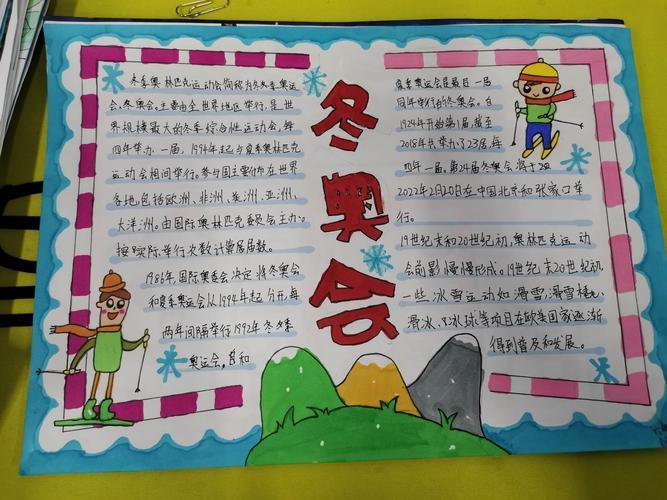 冬奥会
冬季奥林匹克运动会简称为冬季奥运
会、冬奥会。主要由全世界地区举行，是世
界规模最大的冬季综合性运动会，每
四年举办一届，1994年起与夏季奥林匹克
运动会相间举行。参与国主要分布在世界
各地，包括欧洲、非洲、美洲、亚洲、
大洋洲。由国际奥林匹克委员会主办。
按实际举行次数计算届数。
1986年，国际奥委会决定将冬奥会
和夏季奥运会从1994年起分开，每
两年间隔举行，1992年冬季
奥运会。
夏季奥运会是最后一届
同年举行的冬奥会。自
1924年开始第1届，截至
2018年共举办了23届，每
四年一届。第24届冬奥会
2022年2月20日在中国北京和张家口举
行。
19世纪末和20世纪初，奥林匹克运动
会前影慢慢形成。19世纪末20世纪初，
一些冰雪运动如滑雪，滑雪
滑冰、冰球等项目在欧美国家逐渐
得到普及和发展。